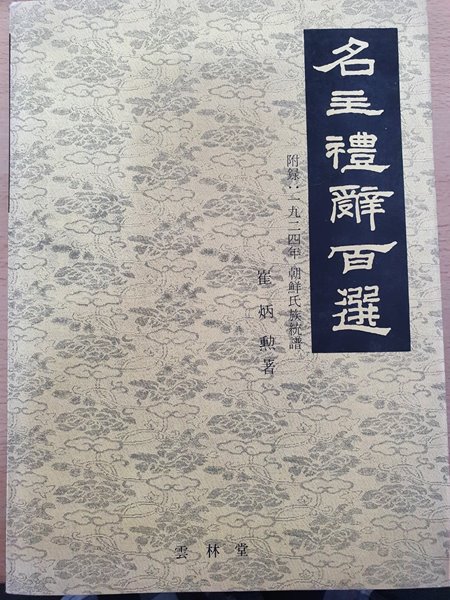 名主禮辭百選
附録:一九二四年 朝鮮氏族統譜
崔炳勳 著
雲林堂